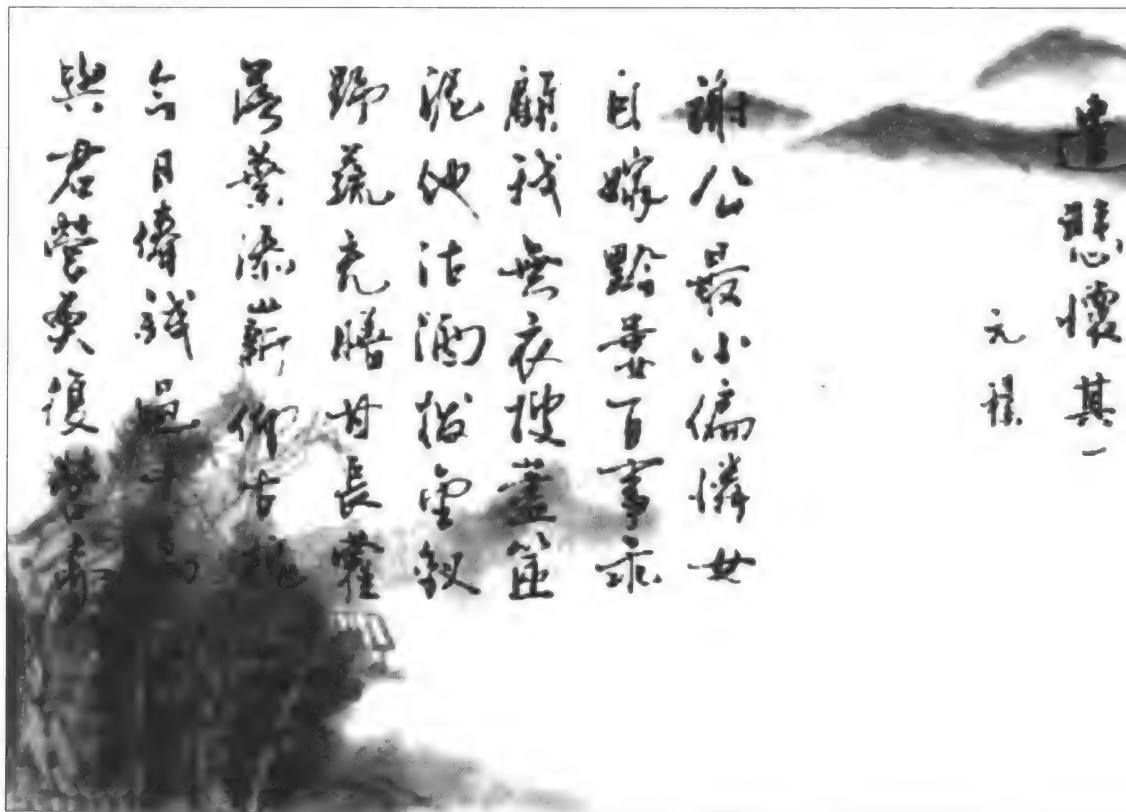 遣悲懷其一
元稹
謝公最小偏憐女
自嫁黔婁百事乖
顧我無衣搜藎篋
泥他沽酒拔金釵
野蔬充膳甘長藿
落葉添薪仰古槐
今日俸錢過十萬
與君營奠復營齋